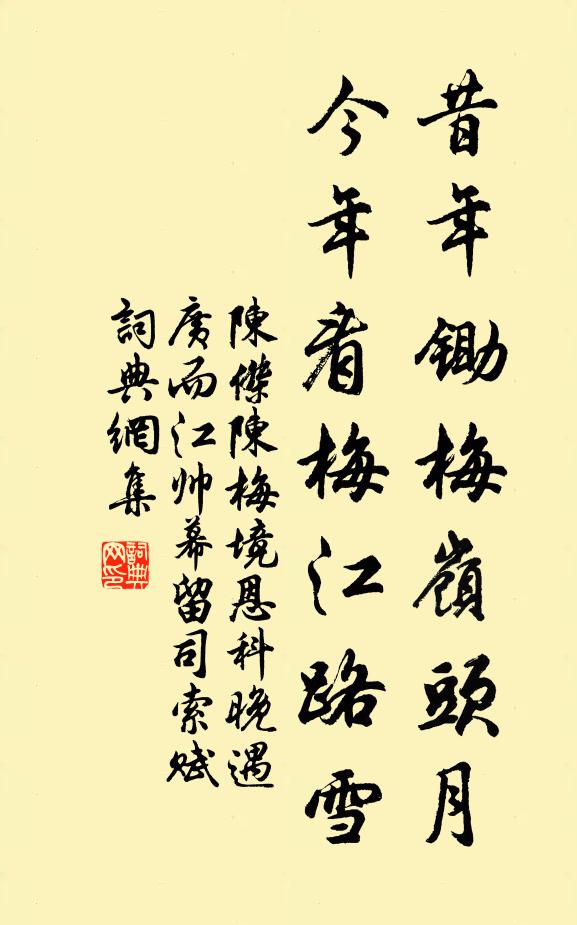 昔年鋤梅嶺頭月
今年看梅江路雪
陳傑陳梅境恩科晚遇
廣而江帅幕留司索賦
詞典網集
詞典
网印